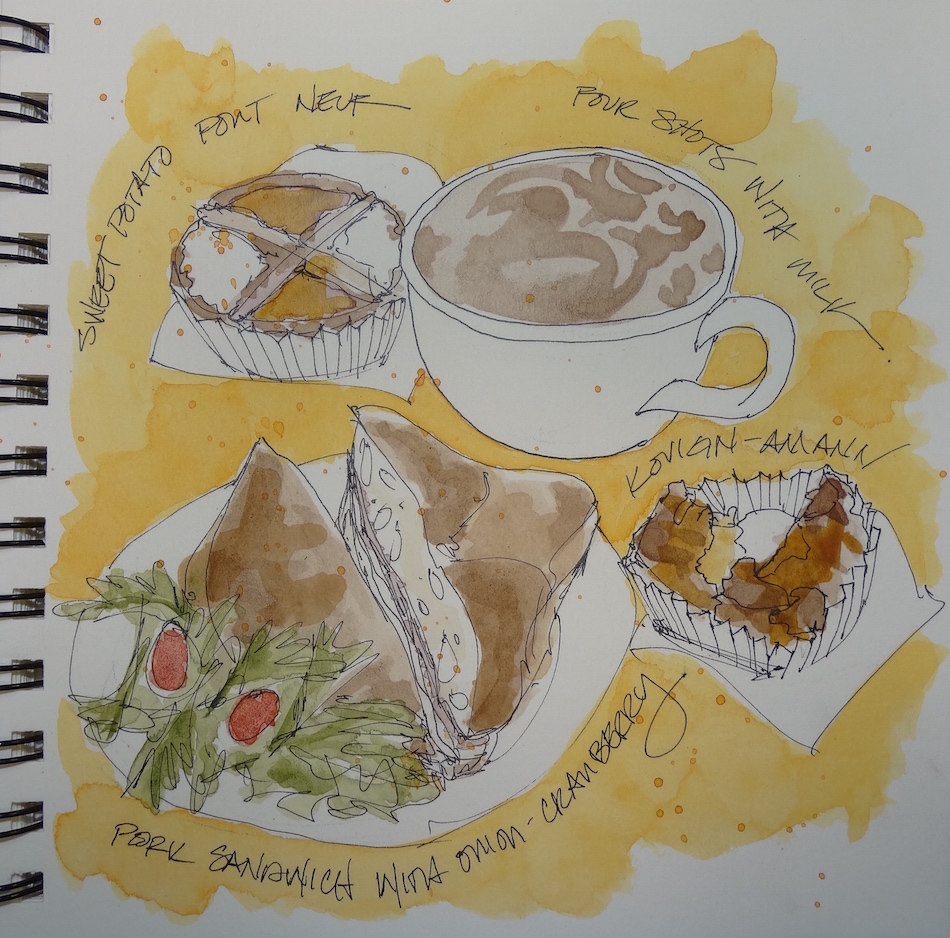 SWEET POTATO PONT NEUF
FOUR SHOTS WITH MILK.
KOUIGN-AMANN
PORK SANDWICH WITH ONION-CRANBERRY